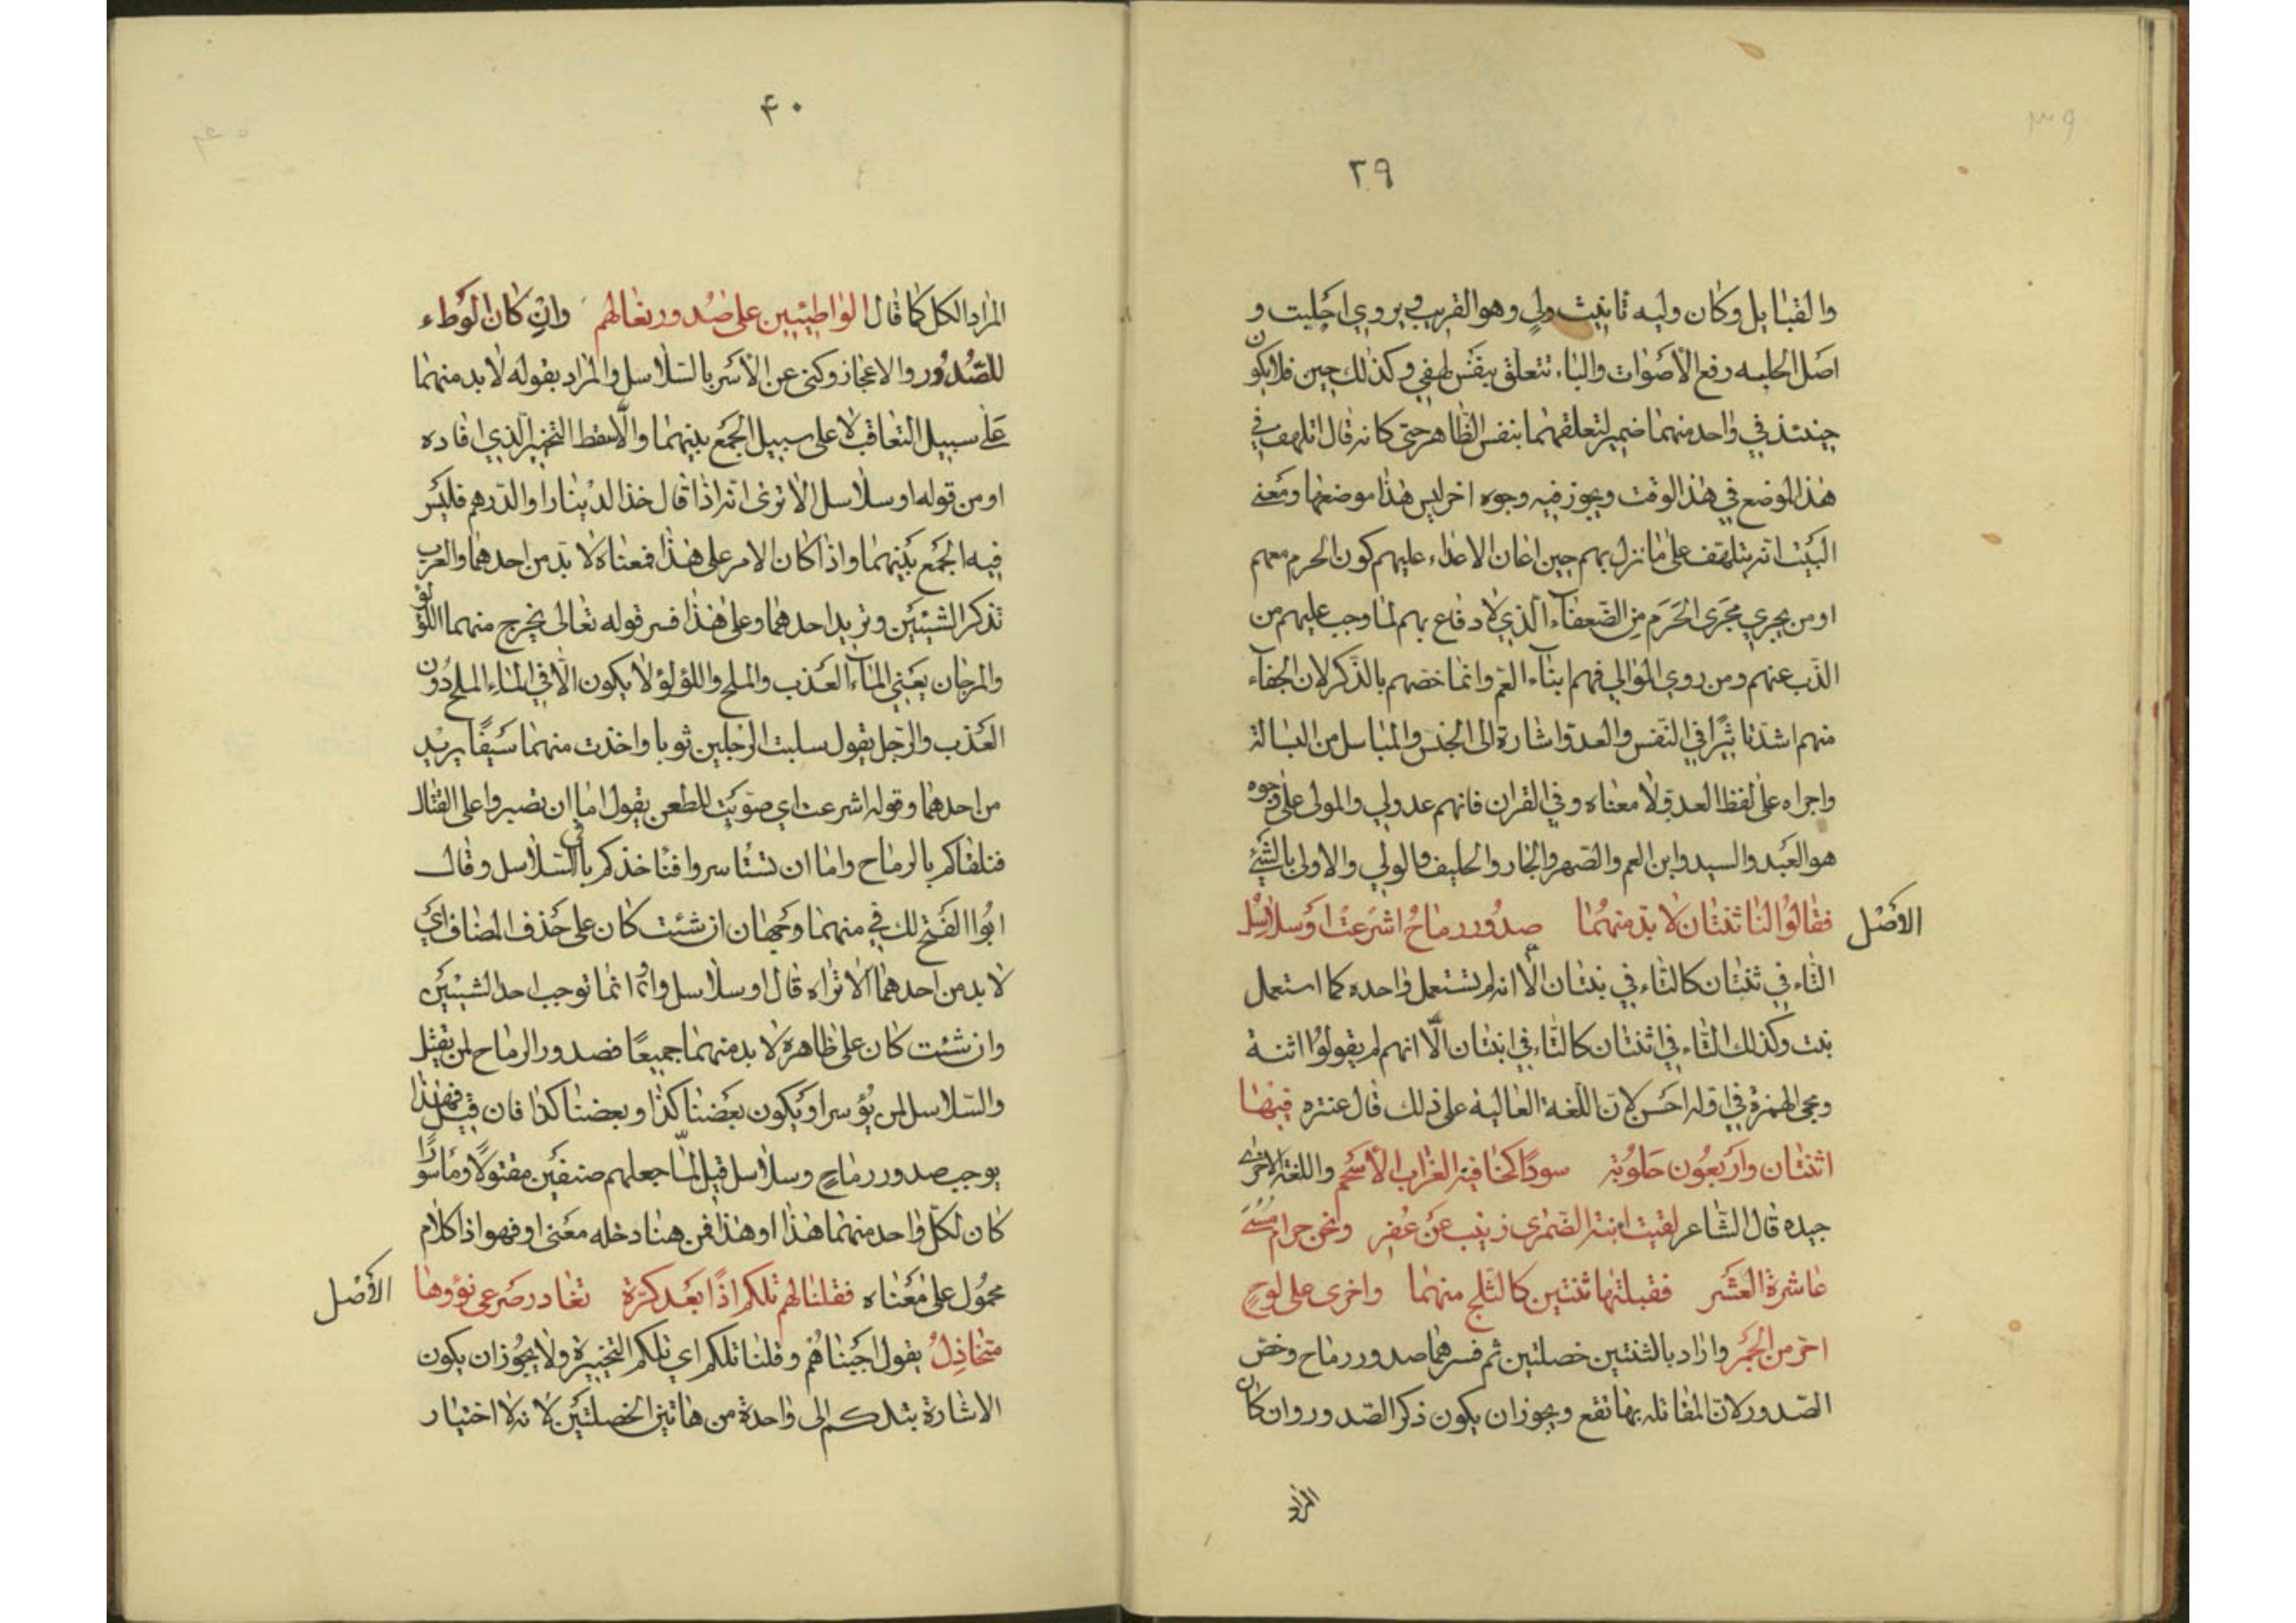 ٣٩
والقبايل وكان وليه تانيث ولي وهو القريب ويروي اجلبت و
اصل الجلبه رفع الأصوات والباء تتعلق بنفس لهفي وكذلك حين فلا يكون
حينئذ في واحد منهما ضمير لتعلقهما بنفس الظاهر حتى كانه قال اتلهف في
هذا الموضع في هذا الوقت ويجوز فيه وجوه اخر ليس هذا موضعها ومعنى
البيت انه يتلهف على ما نزل بهم حين اعان الاعداء عليهم كون الحرم معهم
او من يجري مجرى الحرم من الضعفاء الذي لا دفاع بهم لما وجب عليهم من
الذب عنهم ومن روي الموالي فهم ابناء العم وانما خصهم بالذكر لان الجفاء
منهم اشد تاثيرًا في النفس والعدو اشارة الى الجنس والمباسل من البسالة
واجراه على لفظ العدو لا معناه وفي القران فانهم عدو لي والمولى على وجوه
هو العبد والسيد وابن العم والصهر والجار والحليف والولي والاولى بالشيء
الأصل فقالوا لنا ثنتان لا بد منهما صدور رماح اشرعت او سلاسل
التاء في ثنتان كالتاء في بنتان الّا انه لم تستعمل واحده كما استعمل
بنت وكذلك التاء في اثنتان كالتاء في ابنتان الّا انهم لم يقولوا اثنة
ومجي الهمزة في اوله احسن لان اللغة العالية على ذلك قال عنتره فيها
اثنتان واربعون حلوبة سودًا كخافية الغراب الأسحم واللغة الاخرى
جيده قال الشاعر لقيت ابنة الضمرى زينب عن عفر ونحن حرام مسي
عاشرة العشر فقبلتها ثنتين كالثلج منهما واخرى على لوح
احر من الجمر واراد بالثنتين خصلتين ثم فسرهما صدور رماح وخص
الصدور لان المقاتله بها تقع ويجوز ان يكون ذكر الصدور وان كان
المراد
٤٠
المراد الكل كما قال الواطيين على صدور نعالهم وان كان الوطء
للصدور والاعجاز وكنى عن الأسر بالسلاسل والمراد بقوله لا بد منهما
على سبيل التعاقب لا على سبيل الجمع بينهما والّا سقط التخيير الذي افاده
او من قوله او سلاسل الا ترى انه اذا قال خذ الدينار او الدرهم فليس
فيه الجمع بينهما واذا كان الامر على هذا فمعناه لا بد من احدهما والعرب
تذكر الشيئين وتريد احدهما وعلى هذا فسر قوله تعالى يخرج منهما اللؤلؤ
والمرجان يعني الماء العذب والملح واللؤلؤ لا يكون الّا في الماء الملح دون
العذب والرجل يقول سلبت الرجلين ثوبا واخذت منهما سيفًا يريد
من احدهما وقوله اشرعت اي صوبت للطعن يقول اما ان تصبروا على القتال
فنلقاكم بالرماح واما ان تستاسروا فناخذكم بالسلاسل وقال
ابوا الفتح لك في منهما وجهان ان شئت كان على حذف المضاف اي
لا بد من احدهما الا تراه قال او سلاسل واو انما توجب احد الشيئين
وان شئت كان على ظاهره لا بد منهما جميعًا فصدور الرماح لمن يقتل
والسلاسل لمن يؤسر او يكون بعضنا كذا وبعضنا كذا فان قيل فهذا
يوجب صدور رماح وسلاسل قيل لما جعلهم صنفين مقتولًا وماسورًا
كان لكل واحد منهما هذا او هذا فمن هنا دخله معنى او فهو اذا كلام
محمول على معناه فقلنا لهم تلكم اذًا بعد كرة تغادر صرعى نوؤها الأصل
متخاذل يقول اجبناهم وقلنا تلكم اي تلكم التخييرة ولا يجوز ان يكون
الاشارة بتلكم الى واحدة من هاتين الخصلتين لانه لا اختيار